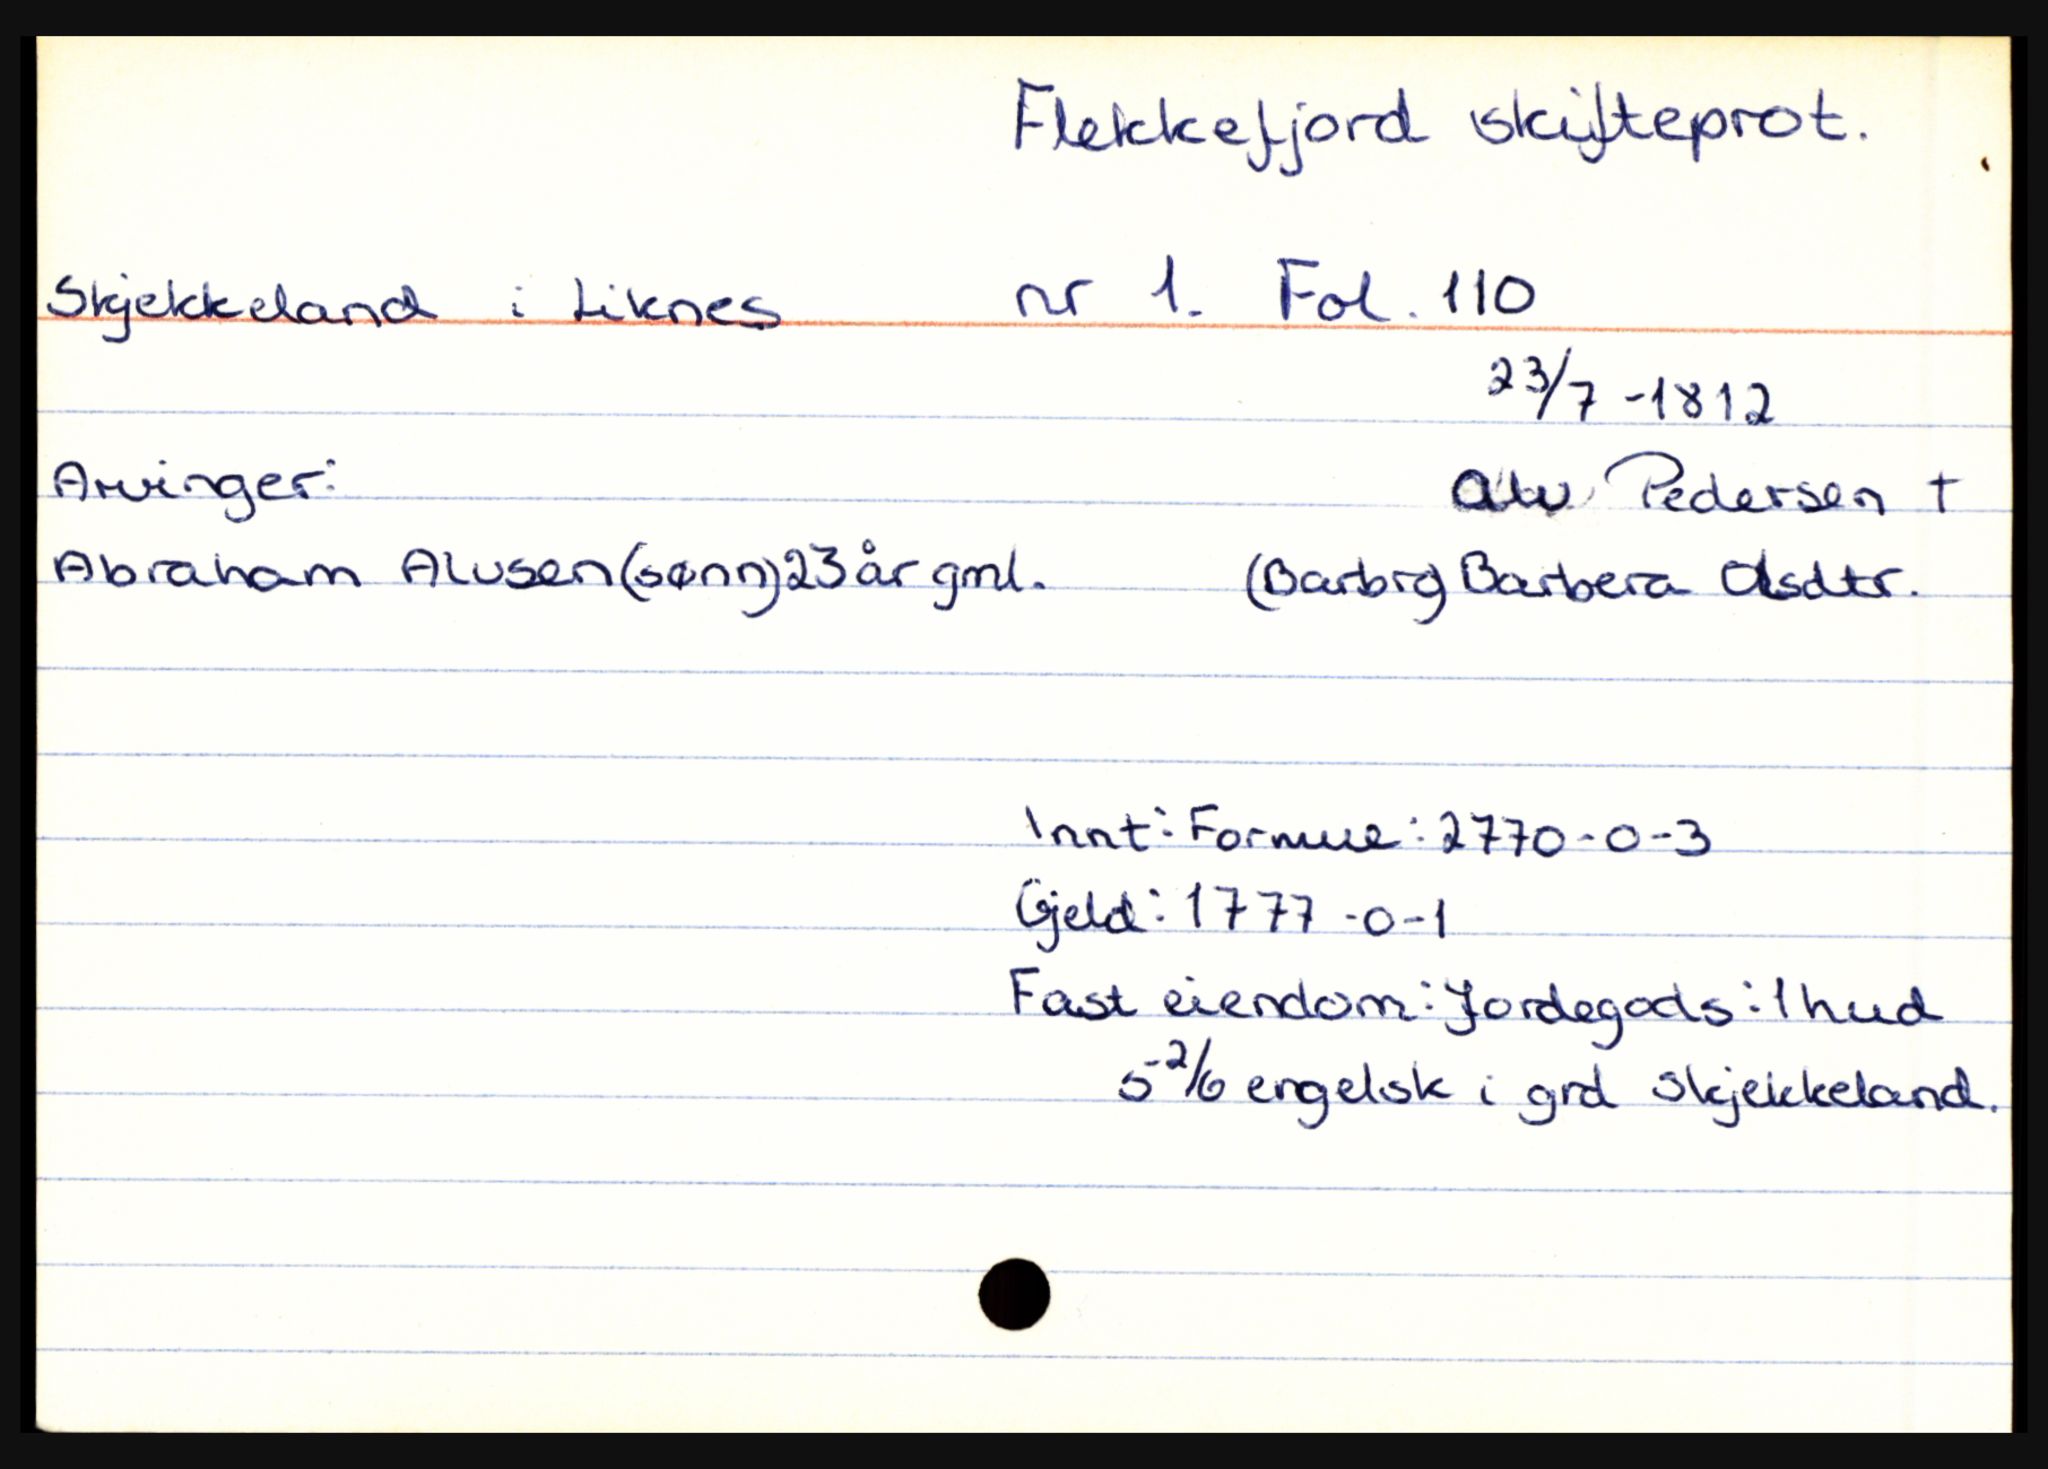 Flekkefjord skifteprot.
Skjekkeland i Liknes nr 1. Fol. 110
23/7 -1812
Arvinger: Alv Pedersen †
Abraham Alvsen (sønn) 23 år gml. (Barbro) Barbera Olsdtr.
Innt: Formue: 2770-0-3
Gjeld: 1777-0-1
Fast eiendom: Jordegods: 1 hud
5-2/6 engelsk i grd Skjekkeland.